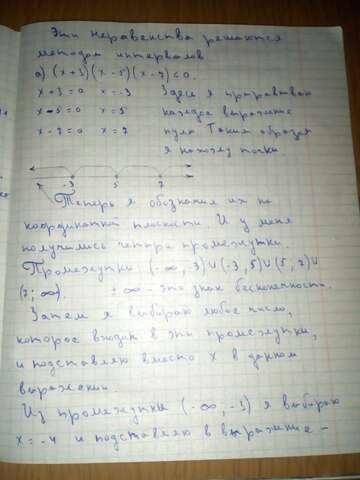 Эти неравенства решаются
методом интервалов
а) (x+3)(x-5)(x-7)≤0.
x+3=0 x=-3 Здесь я приравниваю
x-5=0 x=5 каждое выражение
x-7=0 x=7 нулю Таким образом
я нахожу точки
-3 5 7
Теперь я обозначил их на
координатной плоскости. И у меня
получились четыре промежутки.
Промежутки (-∞, 3)∪(-3,5)∪(5,7)∪
(7; ∞). ±∞ - это знак бесконечность.
Затем я выбираю любое число,
которое входит в эти промежутки,
и подставляю вместо x в данном
выражении.
Из промежутки (-∞, -3) я выбираю
x = -4 и подставляю в выражение -